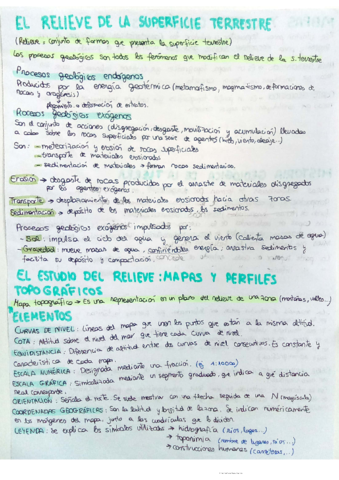 EL RELIEVE DE LA SUPERFICIE TERRESTRE
(Relieve: conjunto de formas que presenta la superficie terrestre)
Los procesos geológicos son todos los fenómenos que modifican el relieve de la s. terrestre
Procesos geológicos endógenos
Producidos por la energía geotérmica (metamorfismo, magmatismo, deformaciones de
rocas y orogénesis)
o deformación de estratos.
Procesos geológicos exógenos
Son el conjunto de acciones (disgregación, desgaste, movilización y acumulación) llevadas
a cabo sobre las rocas superficiales por una serie de agentes (web, viento, oleaje...)
Son: - meteorización y erosión de rocas superficiales
- transporte de materiales erosionados
- sedimentación de materiales → forman rocas sedimentarias.
Erosión → desgaste de rocas producidos por el arrastre de materiales disgregados
por los agentes exógenos
Transporte → desplazamiento de los materiales erosionados hacia otras zonas.
Sedimentación → depósito de los materiales erosionados, los sedimentos.
Procesos geológicos exógenos impulsados por:
- Sol: impulsa el ciclo del agua y genera el viento (calienta masas de agua)
- Gravedad: mueve masas de agua confiriéndoles energía, arrastra sedimentos y
facilita su depósito y compactación.
EL ESTUDIO DEL RELIEVE: MAPAS Y PERFILES
TOPOGRÁFICOS
Mapa topográfico → Es una representación en un plano del relieve de una zona (montañas, valles...)
ELEMENTOS
CURVAS DE NIVEL: Líneas del mapa que unen los puntos que están a la misma altitud.
COTA: Altitud sobre el nivel del mar que tiene cada curva de nivel.
EQUIDISTANCIA: Diferencia de altitud entre dos curvas de nivel consecutivas. Es constante y
característica de cada mapa.
ESCALA NUMÉRICA: Designada mediante una fracción.
ESCALA GRÁFICA: Simbolizada mediante un segmento graduado que indica a qué distancia
real corresponde.
ORIENTACIÓN: Señala el norte. Se suele mostrar con una flecha seguida de una N (mayúscula)
COORDENADAS GEOGRÁFICAS: Son la latitud y longitud de la zona. Se indican numéricamente
en los márgenes del mapa, junto a las cuadrículas que lo dividen
LEYENDA: Se explica los símbolos utilizados → hidrografía (ríos, lagos...)
→ toponimia (nombre de lugares, ríos...)
→ construcciones humanas (carreteras,...)